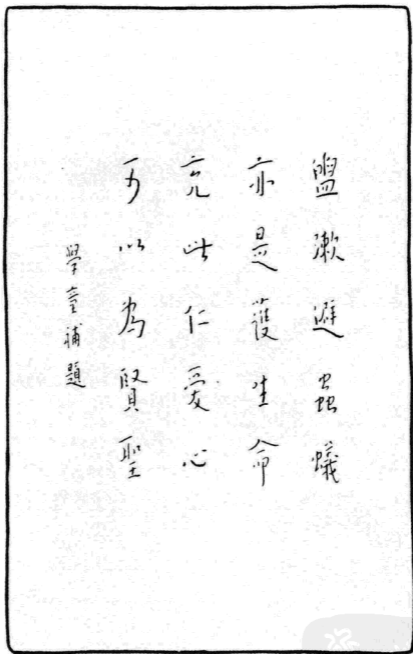 盥漱避蟲蟻
亦是護生命
充此仁愛心
可以為賢聖
學童補題